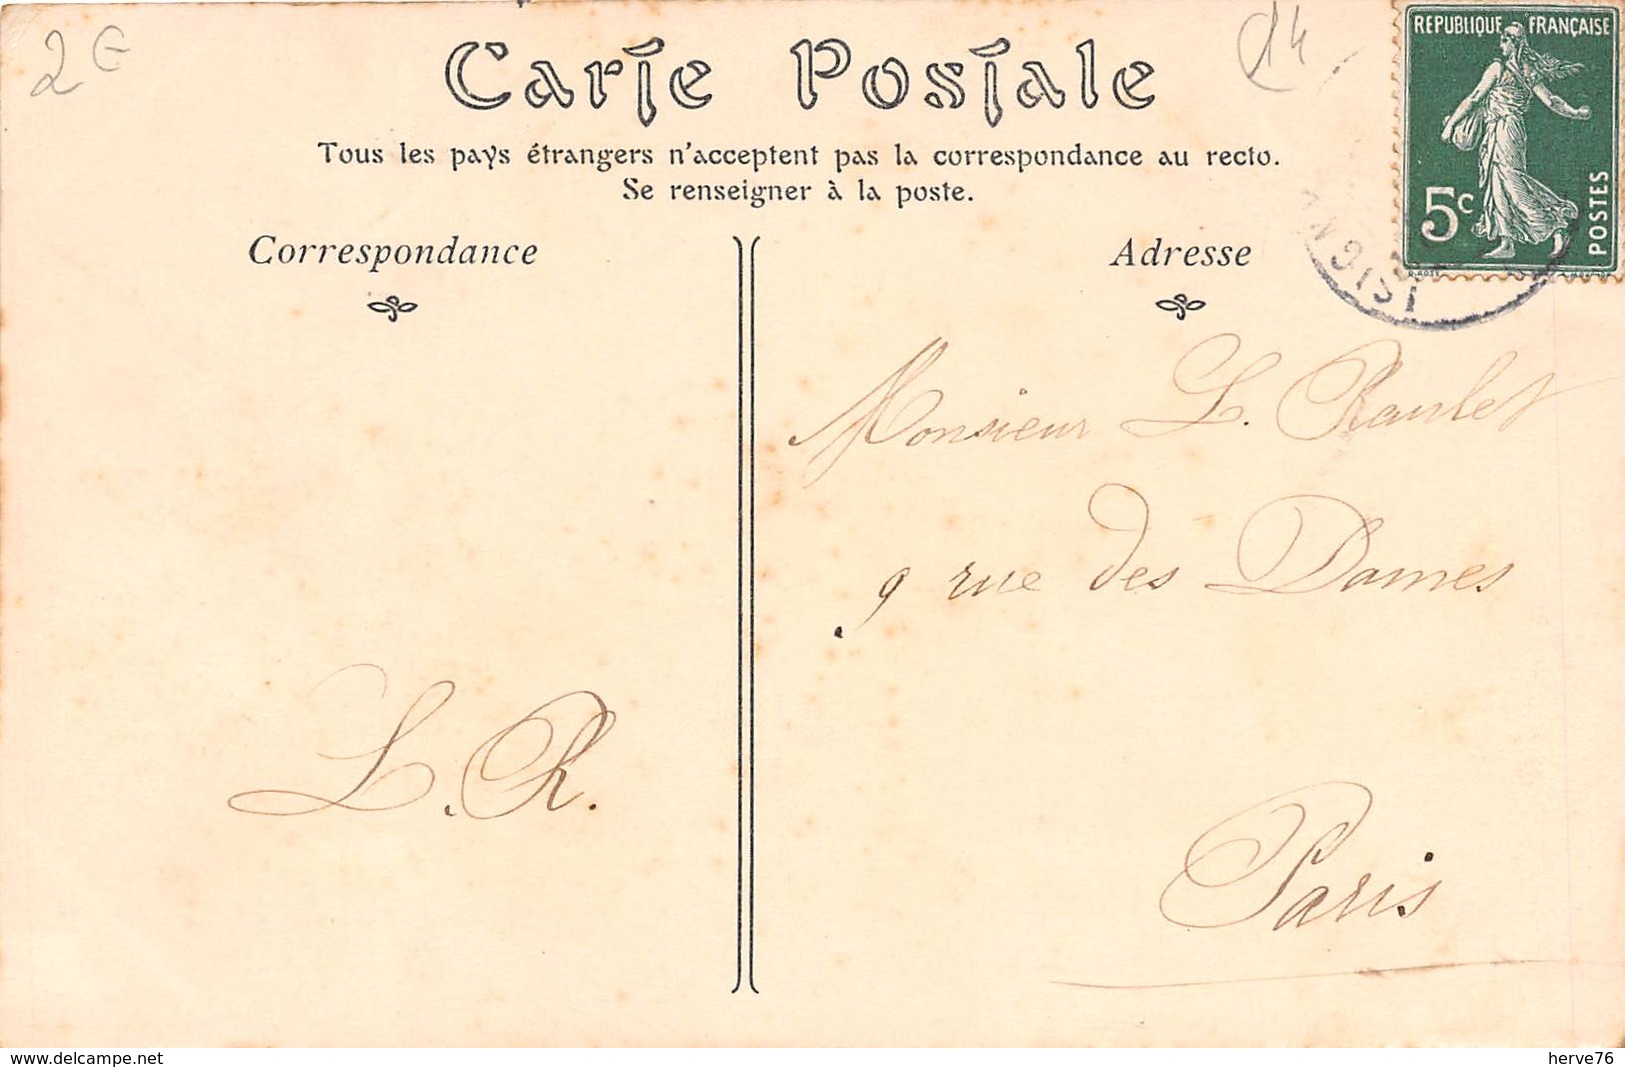 2€
14
Carte Postale
REPUBLIQUE FRANÇAISE
5c
POSTES
Tous les pays étrangers n'acceptent pas la correspondance au recto.
Se renseigner à la poste.
Correspondance
Adresse
ISIGN
Monsieur L. Raulet
9 rue des Dames
L. R.
Paris
www.delcampe.net
herve76